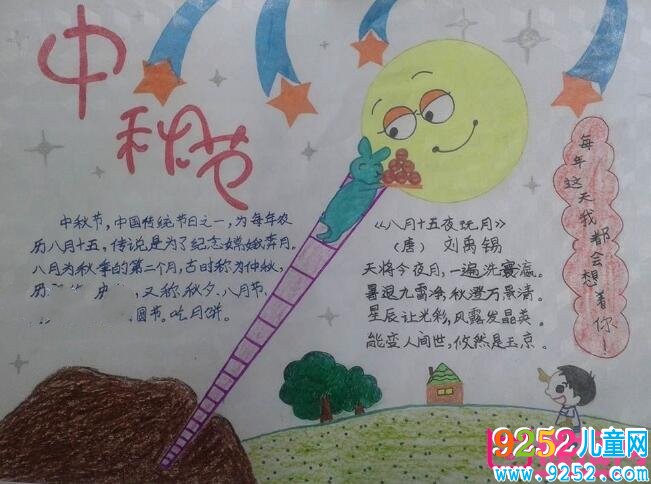 中秋节
中秋节，中国传统节日之一，为每年农
历八月十五，传说是为了纪念嫦娥奔月。
八月为秋季的第二个月，古时称为仲秋，
历
又称秋夕、八月节、
圆节。吃月饼。
《八月十五夜玩月》
（唐） 刘禹锡
天将今夜月，一遍洗寰瀛。
暑退九霄净，秋澄万景清。
星辰让光彩，风露发晶英。
能变人间世，攸然是玉京。
每年这天我都会想着你！
9252儿童网
www.9252.com